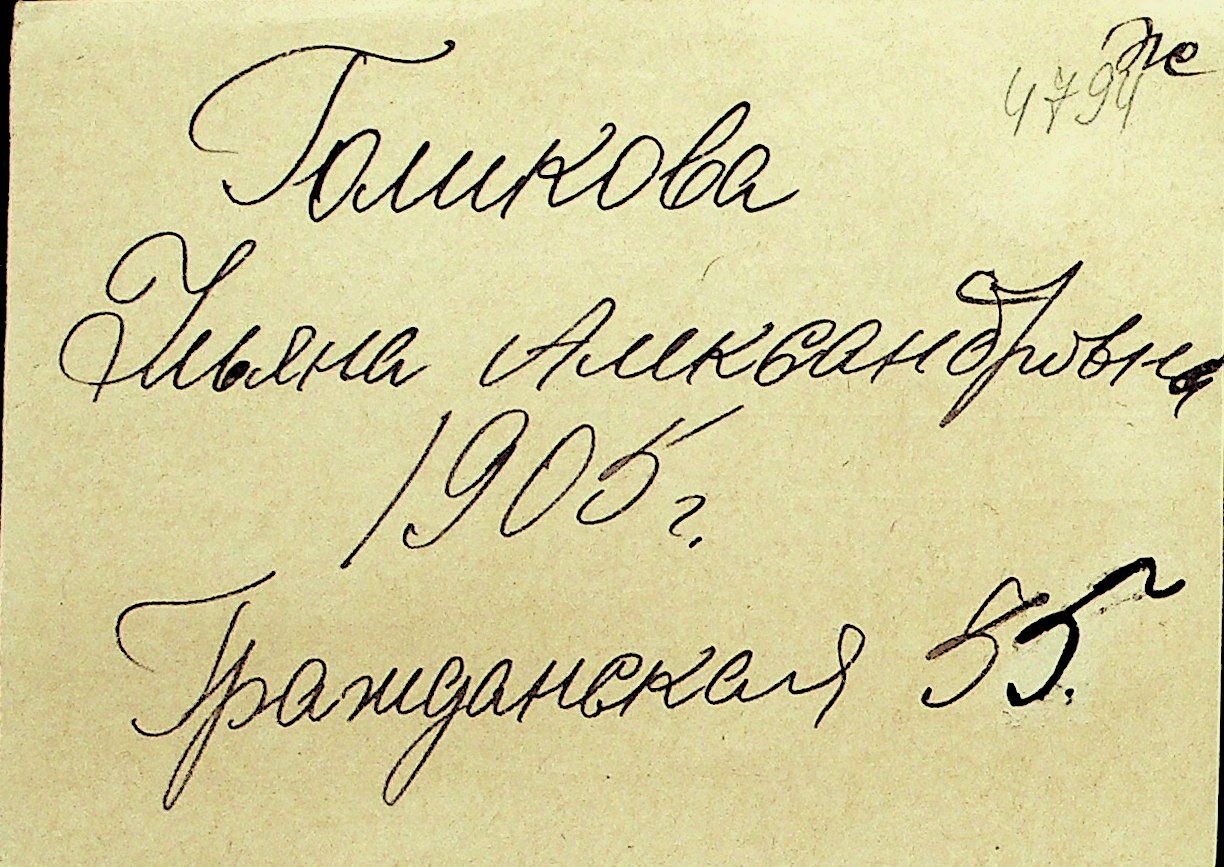 же
4794
Голикова
Ульяна Александровна
1905 г.
Гражданская 55.